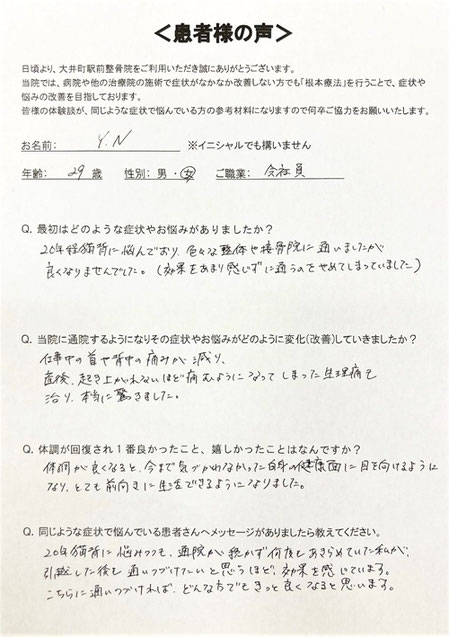 ＜患者様の声＞
日頃より、大井町駅前整骨院をご利用いただき誠にありがとうございます。
当院では、病院や他の治療院の施術で症状がなかなか改善しない方でも「根本療法」を行うことで、症状や
悩みの改善を目指しております。
皆様の体験談が、同じような症状で悩んでいる方の参考材料になりますので何卒ご協力をお願いいたします。
お名前： Y.N ※イニシャルでも構いません
年齢： 29 歳 性別：男・女 ご職業： 会社員
Q. 最初はどのような症状やお悩みがありましたか？
20年程猫背に悩んでおり、色々な整体や接骨院に通いましたが
良くなりませんでした。（効果をあまり感じずに通うのをやめてしまっていました）
Q. 当院に通院するようになりその症状やお悩みがどのように変化(改善)していきましたか？
仕事中の首や背中の痛みが減り、
産後、起き上がれないほど痛むようになってしまった生理痛も
治り、本当に驚きました。
Q. 体調が回復され１番良かったこと、嬉しかったことはなんですか？
体調が良くなると、今まで気づかわなかった自身の健康面に目を向けるように
なり、とても前向きに生活できるようになりました。
Q. 同じような症状で悩んでいる患者さんへメッセージがありましたら教えてください。
20年猫背に悩みつつも、通院が続かず何度もあきらめていた私が、
引越した後も通いつづけたいと思うほど、効果を感じています。
こちらに通いつづければ、どんな方でもきっと良くなると思います。